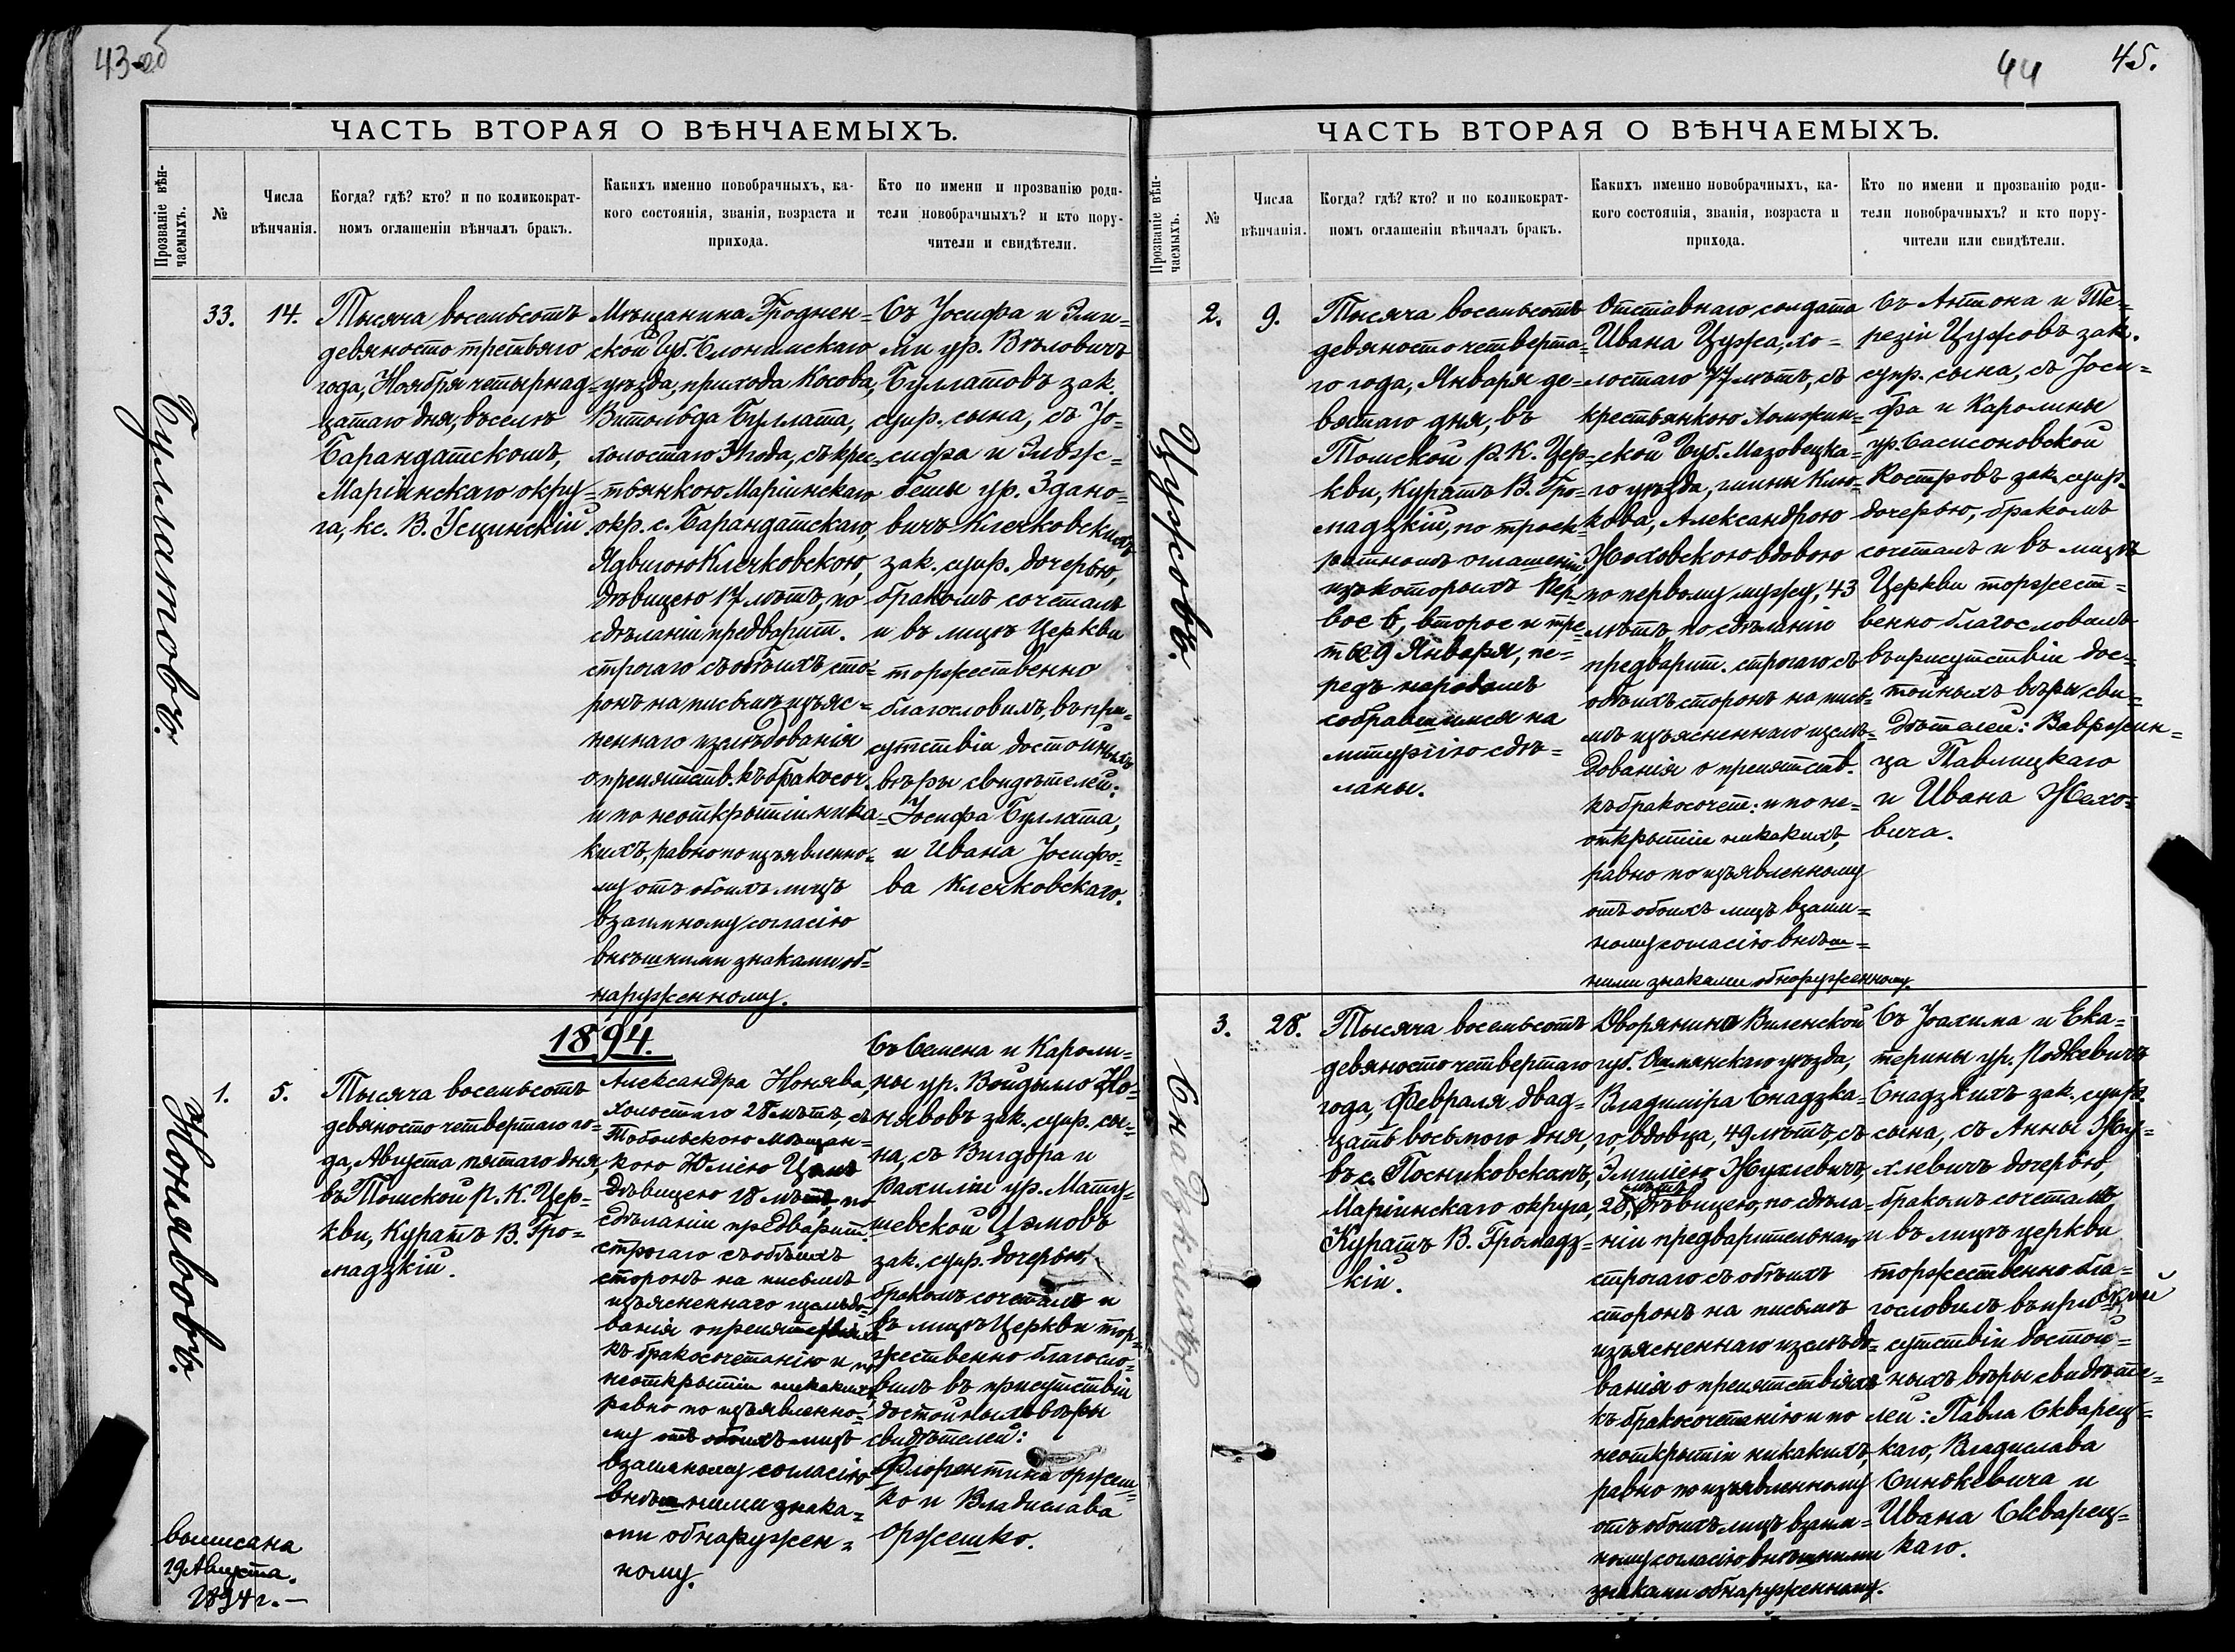 43 об
ЧАСТЬ ВТОРАЯ О ВѢНЧАЕМЫХЪ.
Прозваніе вѣн-
чаемыхъ.
№
Числа
вѣнчанія.
Когда? гдѣ? кто? и по коликократ-
номъ оглашеніи вѣнчалъ бракъ.
Какихъ именно новобрачныхъ, ка-
кого состоянія, званія, возраста и
прихода.
Кто по имени и прозванію роди-
тели новобрачныхъ? и кто пору-
чители и свидѣтели.
Буллатовъ.
33.
14.
Тысяча восемьсотъ
девяносто третьяго
года, Ноября четырнад=
цатаго дня, въ селѣ
Барандатскомъ,
Маріинскаго окру=
га, кс. В. Усцинскій.
Мѣщанина Гроднен=
ской Губ. Слонимскаго
уѣзда, прихода Косова,
Витольда Буллата,
холостаго 31 года, съ крес=
тьянкою Маріинскаго
окр. с. Барандатскаго,
Ядвигою Клечковскою,
дѣвицею 17 лѣтъ, по
сдѣланіи предварит.
строгаго съ обѣихъ сто=
ронъ на письмѣ изъяс=
неннаго изслѣдованія
о препятств. къ бракосоч.
и по неоткрытіи ника=
кихъ, равно по изъявленно=
му отъ обоихъ лицъ
взаимному согласію
внѣшними знаками об=
наруженному.
Съ Іосифа и Эми=
ліи ур. Вѣловичъ
Буллатовъ зак.
супр. сына, съ Іо=
сифа и Эльж=
беты ур. Здано=
вичъ Клечковскихъ
зак. супр. дочерью,
бракомъ сочеталъ
и въ лицѣ Церкви
торжественно
благословилъ, въ при=
сутствіи достойныхъ
вѣры свидѣтелей:
Іосифа Буллата,
и Ивана Іосифо=
ва Клечковскаго.
1894.
Нонявовъ.
1.
5.
Тысяча восемьсотъ
девяносто четвертаго го=
да, Августа пятаго дня,
въ Томской Р. К. Цер=
кви, Куратъ В. Гро=
мадзкій.
Александра Нонява,
холостаго 28 лѣтъ, съ
Тобольскою мѣщан=
кою Юліею
дѣвицею 18 лѣтъ, по
сдѣланіи предварит.
строгаго съ обѣихъ
сторонъ на письмѣ
изъясненнаго изслѣдо=
ванія о препятствіяхъ
къ бракосочетанію и по
неоткрытіи никакихъ,
равно по изъявленно=
му отъ обоихъ лицъ
взаимному согласію
внѣшними знака=
ми обнаружен=
ному.
Съ Семена и Кароли=
ны ур. Войдыло Но=
нявовъ зак. супр. сы=
на, съ Виктора и
Рахиліи ур. Мату=
шевской
зак. супр. дочерью,
бракомъ сочеталъ и
въ лицѣ Церкви тор=
жественно благосло=
вилъ въ присутствіи
достойныхъ вѣры
свидѣтелей:
Флорентина Оржеш=
ко и Владислава
Оржешко.
выписана
19 Августа.
1894 г. —
44
45.
ЧАСТЬ ВТОРАЯ О ВѢНЧАЕМЫХЪ.
Прозваніе вѣн-
чаемыхъ.
№
Числа
вѣнчанія.
Когда? гдѣ? кто? и по коликократ-
номъ оглашеніи вѣнчалъ бракъ.
Какихъ именно новобрачныхъ, ка-
кого состоянія, званія, возраста и
прихода.
Кто по имени и прозванію роди-
тели новобрачныхъ? и кто пору-
чители или свидѣтели.
Цужовъ.
2.
9.
Тысяча восемьсотъ
девяносто четверта=
го года, Января де=
вятаго дня, въ
Томской Р. К. Цер=
кви, Куратъ В. Гро=
мадзкій, по троек=
ратномъ оглашеніи
изъ которыхъ пер=
вое 6, второе и тре=
тье 9 Января, пе=
редъ народомъ
собравшимся на
литургію сдѣ=
ланы.
Отставнаго солдата
Ивана Цужа, хо=
лостаго 77 лѣтъ, съ
крестьянкою Ломжин=
ской Губ. Мазовецка=
го уѣзда, гмины Клю=
кова, Александрою
Жоховскою вдовою
по первому мужу, 43
лѣтъ по сдѣланіи
предварит. строгаго съ
обѣихъ сторонъ на пись=
мѣ изъясненнаго изслѣ=
дованія о препятств.
къ бракосочет: и по не=
открытіи никакихъ,
равно по изъявленному
отъ обоихъ лицъ взаим=
ному согласію внѣш=
ними знаками обнаруженному.
Съ Антона и Те=
резіи Цужовъ зак.
супр. сына, съ Іоси=
фа и Каролины
ур. Сасисоновской
Костровъ зак. супр.
дочерью, бракомъ
сочеталъ и въ лицѣ
Церкви торжест=
венно благословилъ
въ присутствіи дос=
тойныхъ вѣры сви=
дѣтелей: Вавржин=
ца Павлицкаго
и Ивана Жехо=
вича.
Снадзкихъ.
3.
28.
Тысяча восемьсотъ
девяносто четвертаго
года, Февраля двад=
цать восьмого дня,
въ с. Постниковскомъ,
Маріинскаго округа,
Куратъ В. Громадз=
кій.
Дворянина Виленской
губ. Ошмянскаго уѣзда,
Владиміра Снадзка=
го, вдовца, 49 лѣтъ, съ
Эмиліею Жухлевичъ,
28 лѣтъ дѣвицею, по сдѣла=
ніи предварительнаго
строгаго съ обѣихъ
сторонъ на письмѣ
изъясненнаго изслѣдо=
ванія о препятствіяхъ
къ бракосочетанію и по
неоткрытіи никакихъ,
равно по изъявленному
отъ обоихъ лицъ взаим=
ному согласію внѣшними
знаками обнаруженному.
Съ Іоахима и Ека=
терины ур. Родкевичъ
Снадзкихъ зак. супр.
сына, съ Анны Жу=
хлевичъ дочерью,
бракомъ сочеталъ
и въ лицѣ церкви
торжественно бла=
гословилъ въ при=
сутствіи достой=
ныхъ вѣры свидѣте=
лей: Павла Скварец=
каго, Владислава
Синкевича и
Ивана Скварец=
каго.